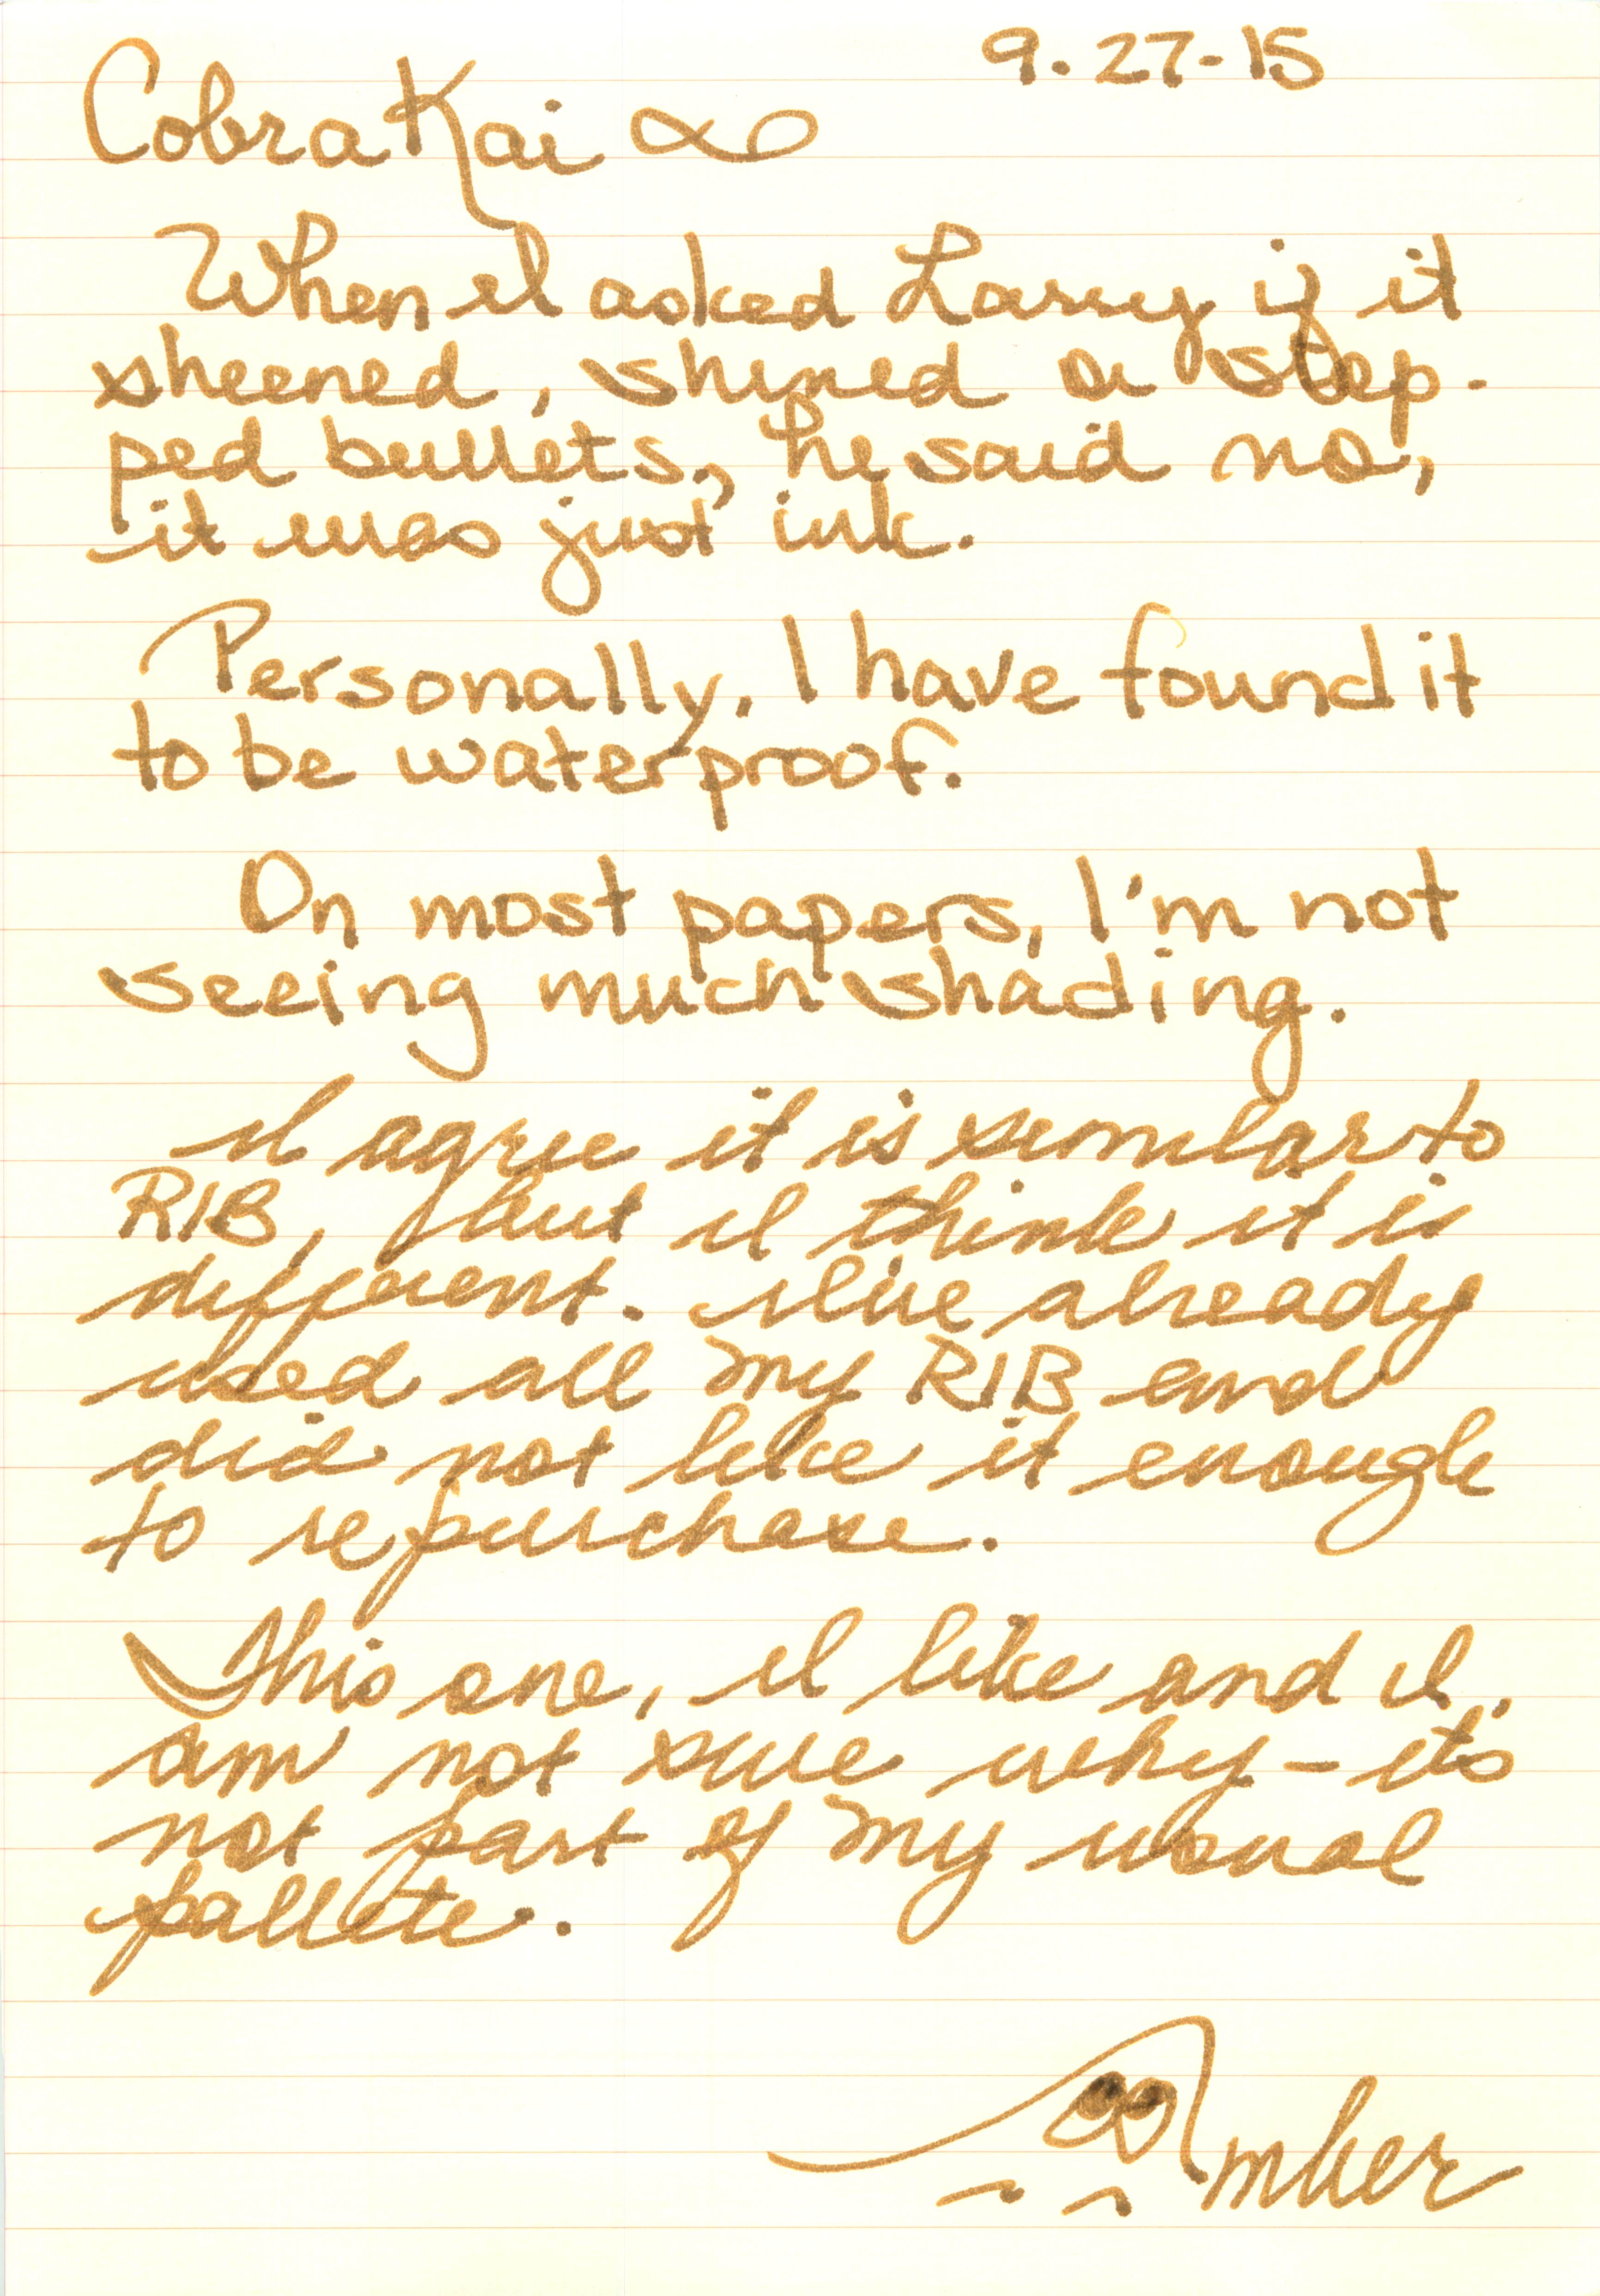 9.27-15
Cobra Kai ∞
When I asked Larry if it
sheened, shined or stop-
ped bullets, he said no,
it was just ink.
Personally, I have found it
to be waterproof.
On most papers, I'm not
seeing much shading.
I agree it is similar to
RIB, but I think it is
different. I've already
used all my RIB and
did not like it enough
to repurchase.
This one, I like and I
am not sure why - it's
not part of my usual
pallete.
Amber